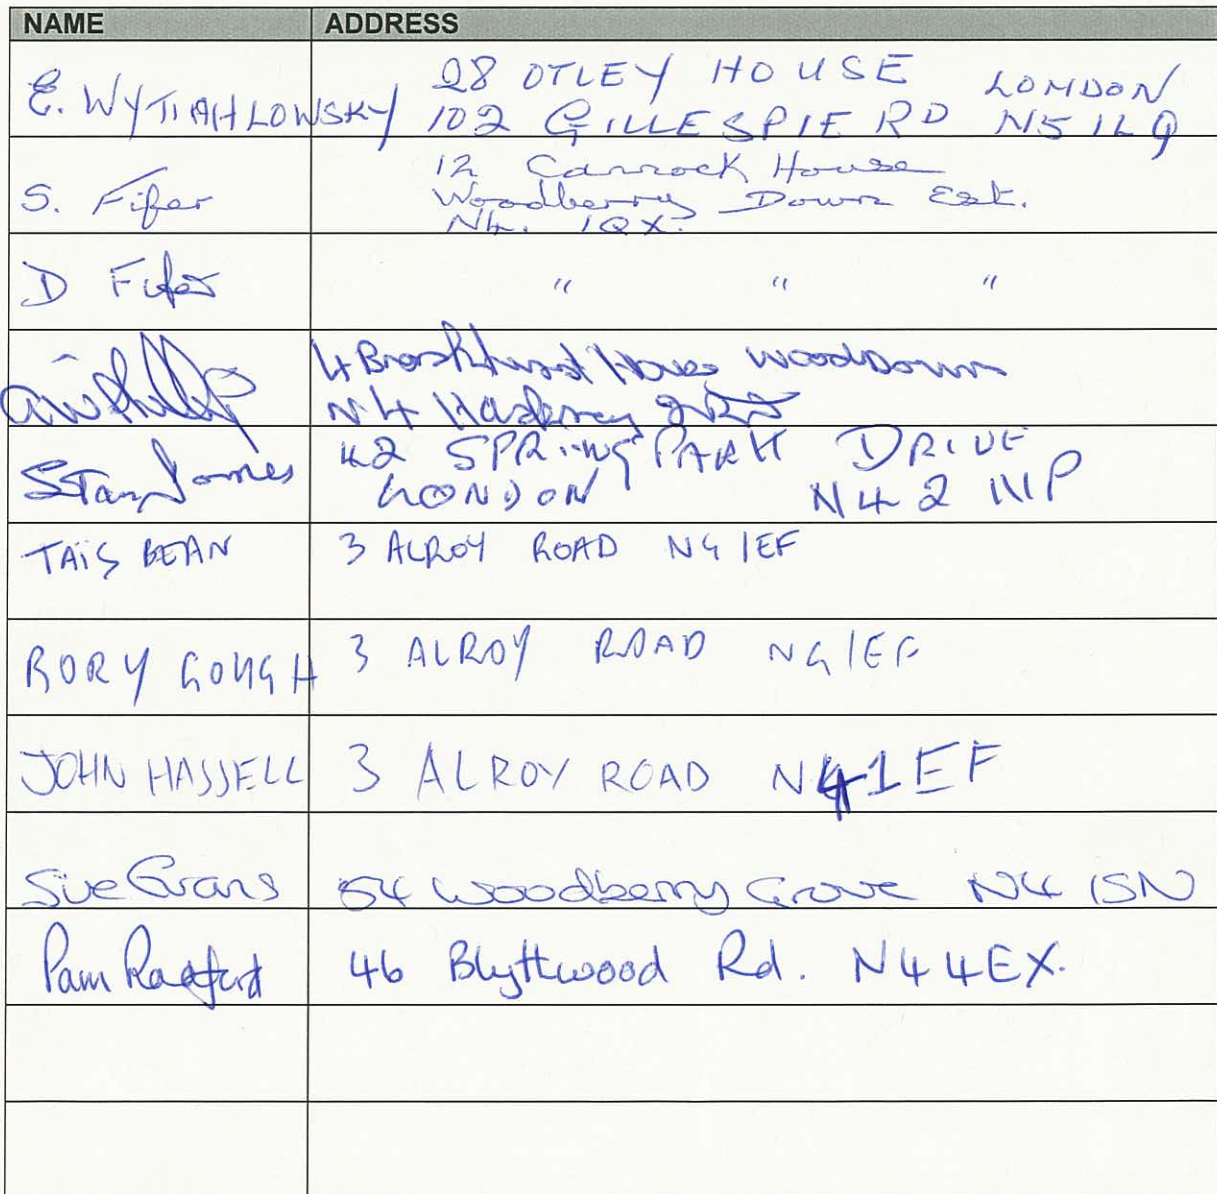 NAME ADDRESS
E. WYTIAHLOWSKY 28 OTLEY HOUSE LONDON
102 GILLESPIE RD N5 1LQ
S. Fifer 12 Cannock House
Woodberry Down Est.
N4. 1QX.
D Fifer " " "
4 House WoodDown
N4
Stan James 42 SPRiNG PARK DRIVE
LONDON N4 2 NP
TAÏS BEAN 3 ALROY ROAD N4 1EF
RORY GOUGH 3 ALROY ROAD N4 1EF
JOHN HASSELL 3 ALROY ROAD N4 1EF
Sue Evans 54 Woodberry Grove N4 1SN
Pam Radford 46 Blythwood Rd. N4 4EX.